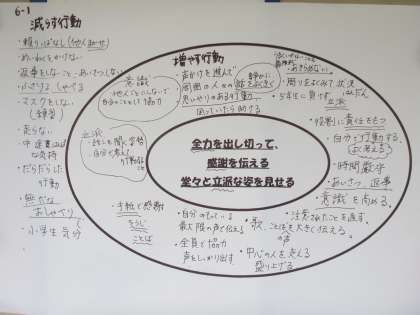 6-1
減らす行動
・頼りっぱなし(他人まかせ)
・めいわくをかけない
・返事をしないこと・あいさつしない
・ふざける しゃべる
・マスクをしない
・走らない
・中途半ぱな
気持ち
・だらだらした
行動
・無だな
おしゃべり
・小学生気分
増やす行動
意識
他人ごとにしないで
自分のこととして協力
・声かけを進んで
・周囲の人を
・思いやりのある行動
・困っていたら助ける
静かに
話をきく
あきらめない。
・周りをよくみて状況
はんだん
・5年生に見せる
立派
・役割に責任をもつ
・自分で行動する。
(よく考える)
・時間厳守
・あいさつ、返事
・意識を高める。
・注意されたことを直す。
・歌、ことばを大きく伝える。
の声
・中心の人を支える
盛り上げる
・自分のもっている
最大限の声で伝える
・全員で協力
声をしっかり出す
・手紙で感謝
そうじ
ことば
立派
・話を聞く姿勢
・自分で考えて
行動
全力を出し切って、
感謝を伝える
堂々と立派な姿を見せる